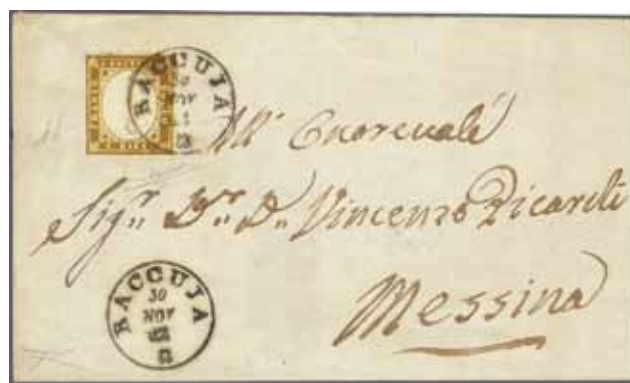 RACCUJA
30
NOV
All' Onorevole
Sigr. Dr. D. Vincenzo Picardi
Messina
RACCUJA
30
NOV